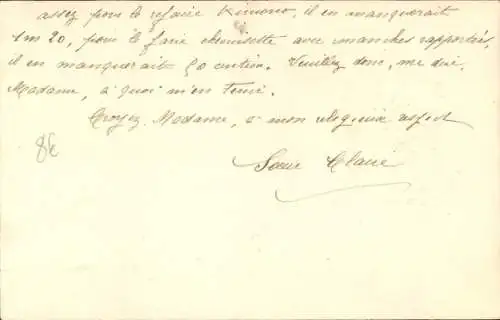 assez pour le refaire Kimono, il en manquerait
1m 20, pour le faire chemisette avec manches rapportées,
il en manquerait 50 centim. Veuillez donc, me dire
Madame, à quoi m'en tenir.
Croyez Madame, à mon religieux respect
Sœur Claire
8€